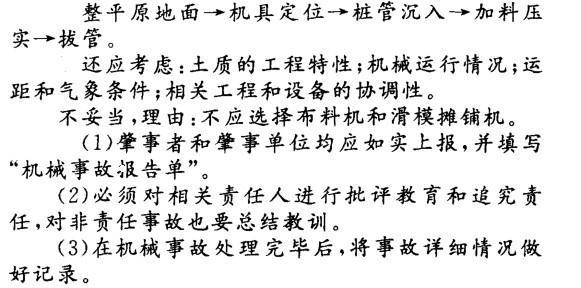 整平原地面→机具定位→桩管沉入→加料压
实→拔管。
还应考虑:土质的工程特性;机械运行情况;运
距和气象条件;相关工程和设备的协调性。
不妥当,理由:不应选择布料机和滑模摊铺机。
(1)肇事者和肇事单位均应如实上报,并填写
“机械事故报告单”。
(2)必须对相关责任人进行批评教育和追究责
任,对非责任事故也要总结教训。
(3)在机械事故处理完毕后,将事故详细情况做
好记录。